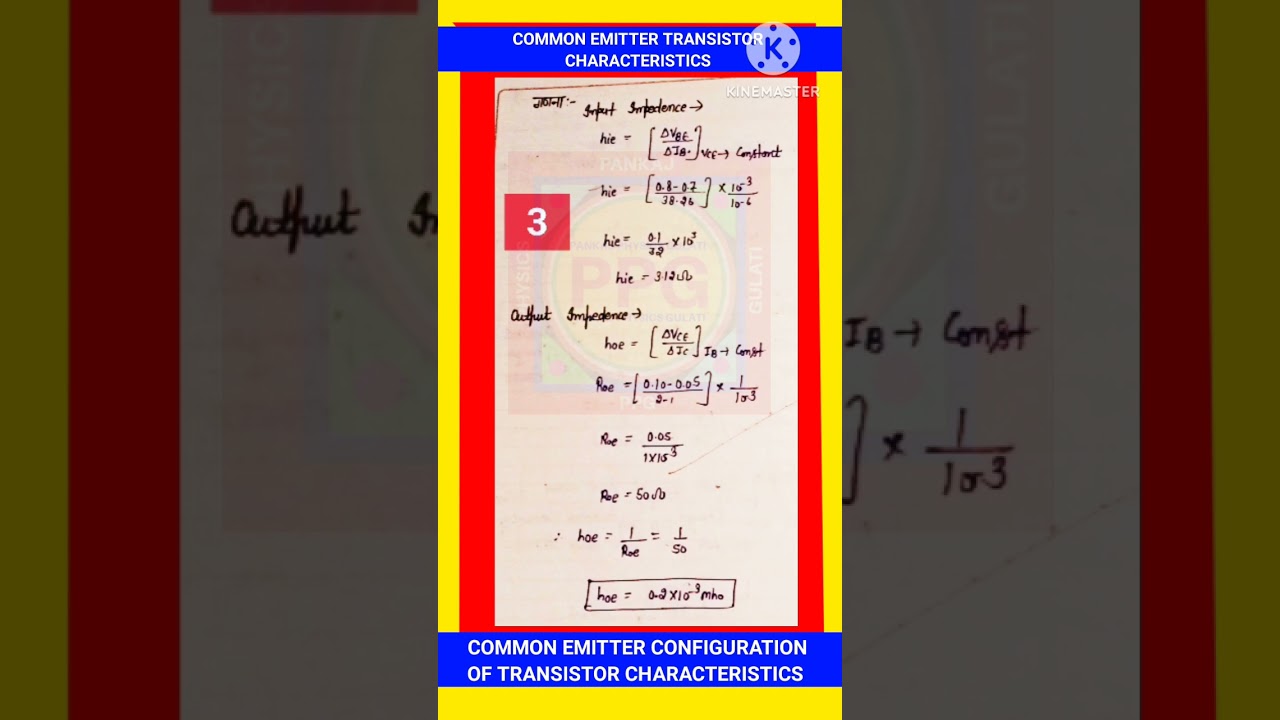 COMMON EMITTER TRANSISTOR
CHARACTERISTICS
K
KINEMASTER
गणना:- Input Impedence →
hie = [ΔVBE / ΔIB.] VCE → Constant
PANKAJ
hie = [0.8-0.7 / 38.26] × 10⁻³ / 10⁻⁶
3
hie = 0.1 / 32 × 10³
PPG
PHYSICS
GULATI
hie = 3.12Ω
Output Impedence →
hoe = [ΔVCE / ΔIC] IB → Const
Roe = [0.10-0.05 / 2-1] × 1 / 10⁻³
PPG
Roe = 0.05 / 1×10⁻³
Roe = 50Ω
∴ hoe = 1 / Roe = 1 / 50
hoe = 0.2×10⁻³ mho
COMMON EMITTER CONFIGURATION
OF TRANSISTOR CHARACTERISTICS
Output I
IB → Const
] × 1 / 10⁻³